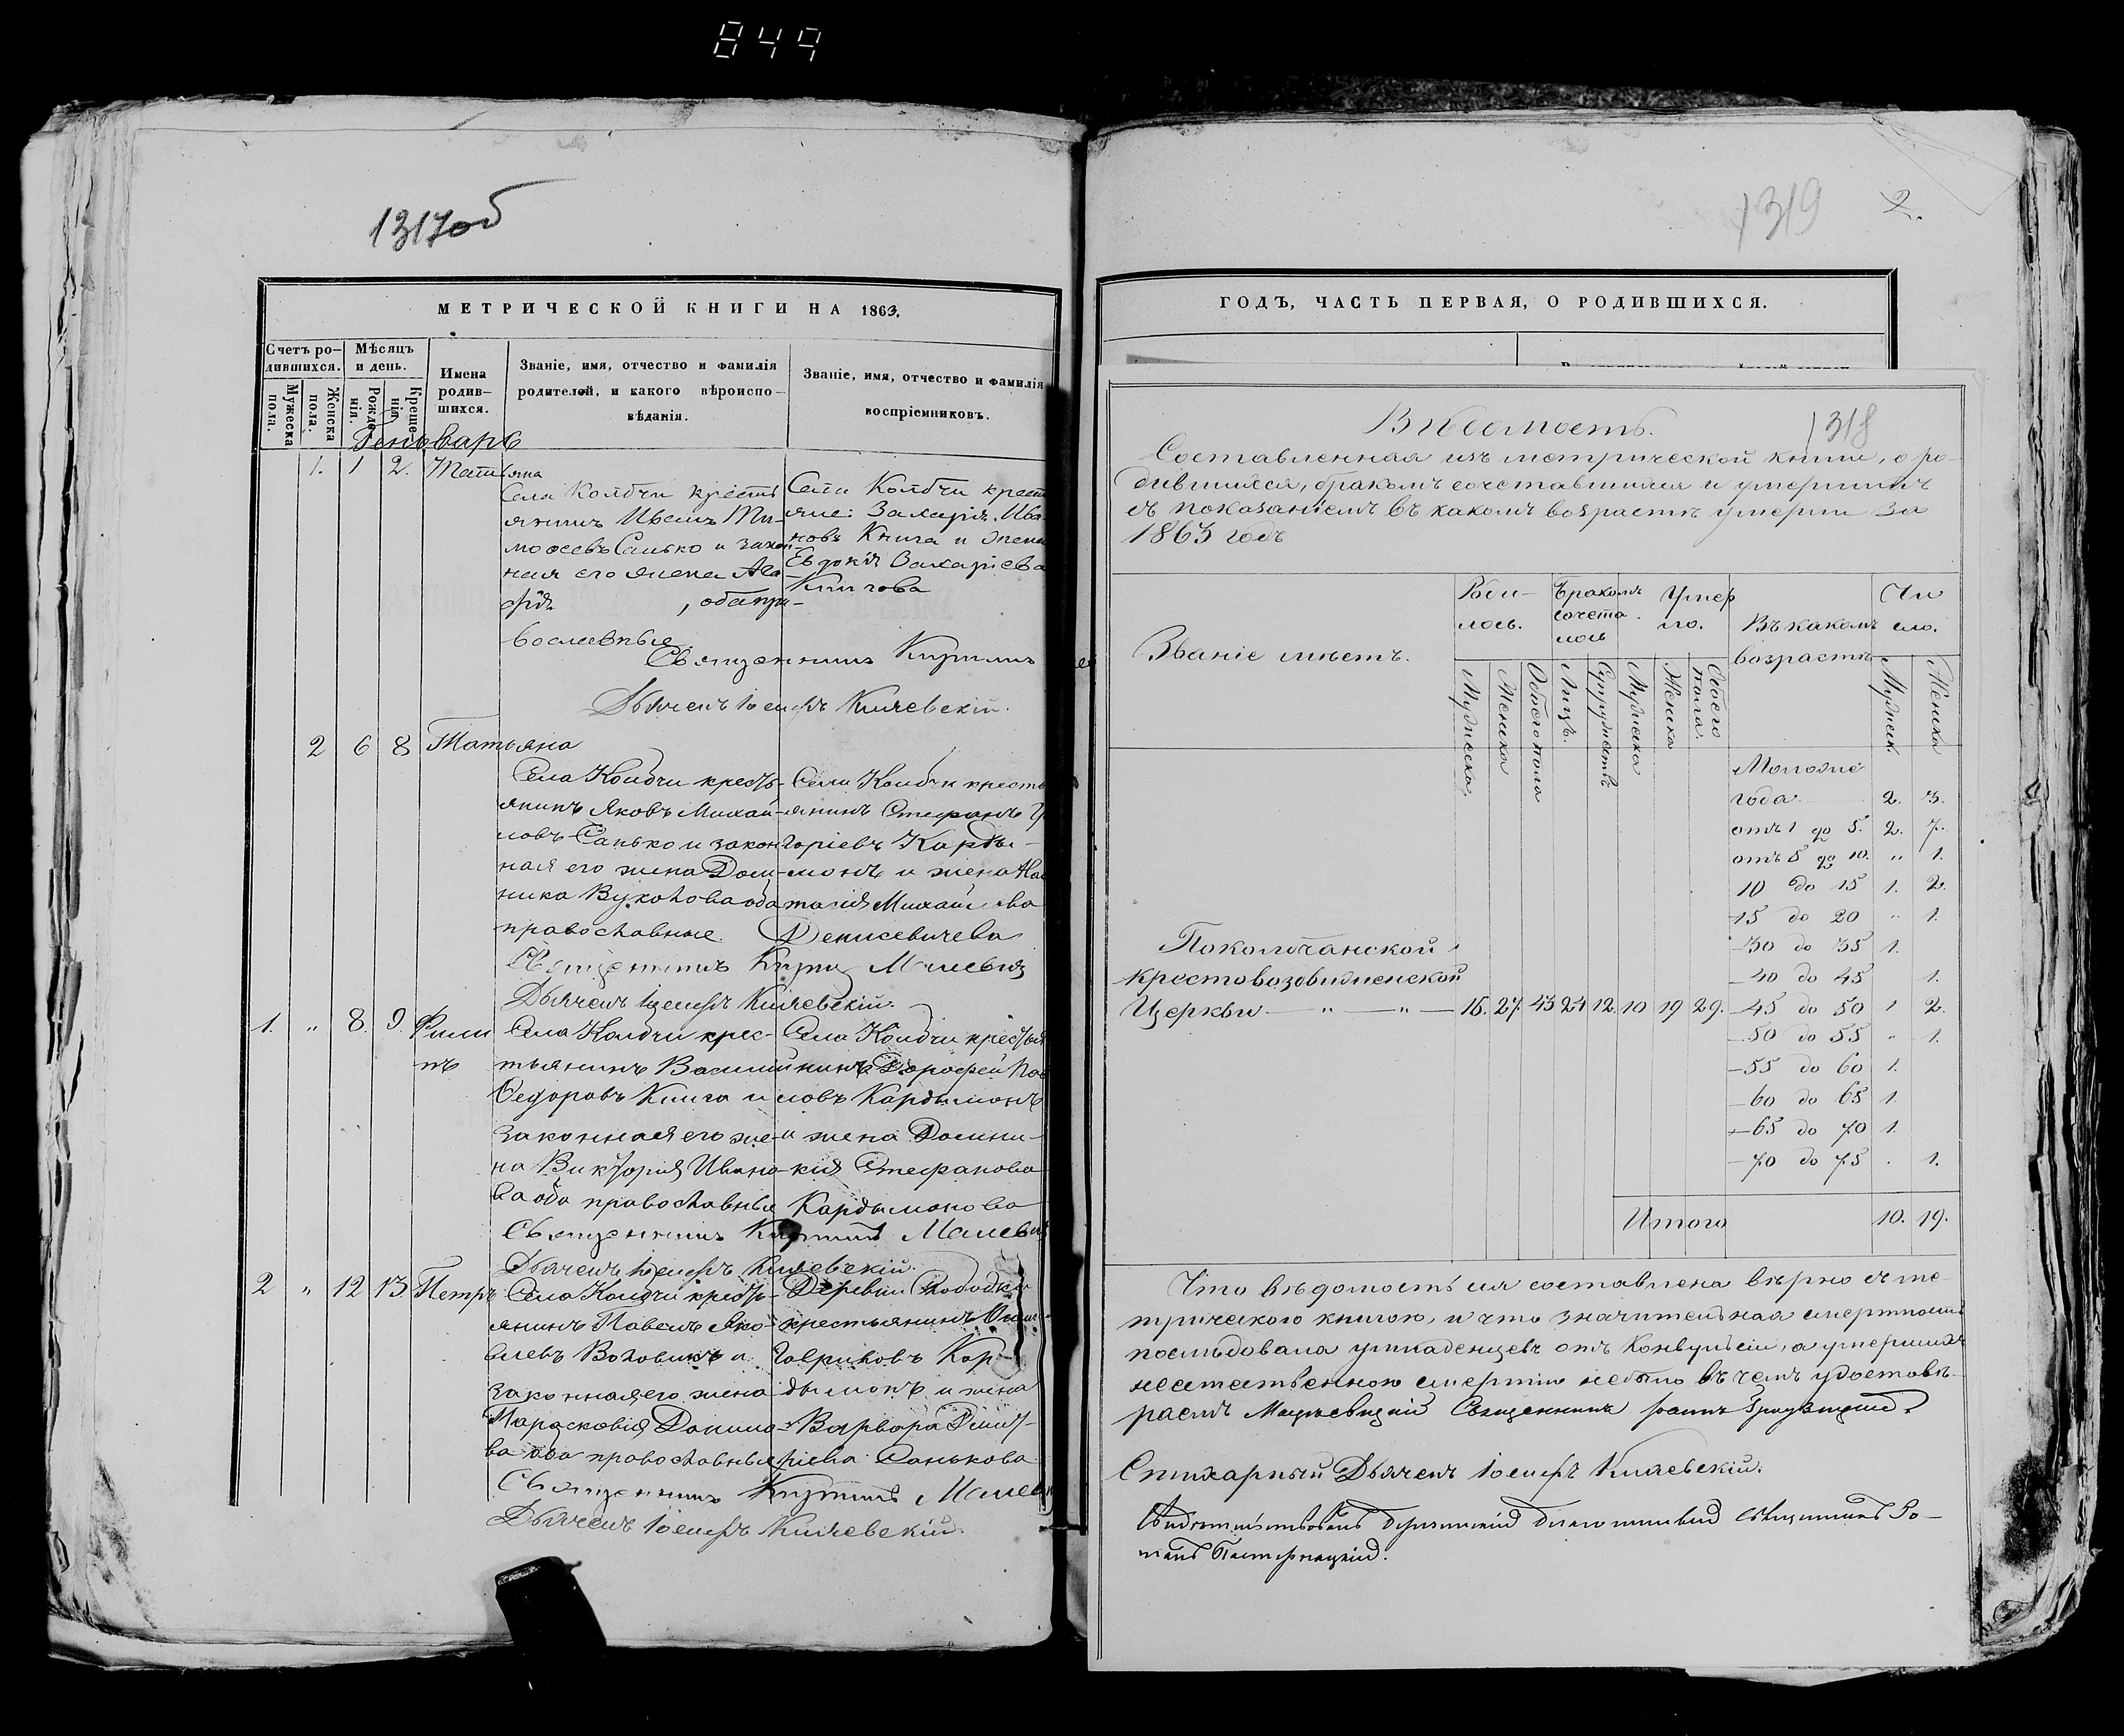 849
1317об
МЕТРИЧЕСКОЙ КНИГИ НА 1863.
Счетъ ро-
дившихся.
Мужеска пола.
Женска пола.
Мѣсяцъ
и день.
Рожденія.
Крещенія.
Имена
родив-
шихся.
Званіе, имя, отчество и фамилія
родителей, и какого вѣроиспо-
вѣданія.
Званіе, имя, отчество и фамилія
воспріемниковъ.
Геньварь
1. 1 2. Татьяна
Села Колбчи кресть
янинъ Иванъ Ти-
моѳеевъ Санько и закон-
ная его жена Ага
фія , оба пра-
вославные
Села Колбчи кресть
яне: Захарія Ива-
новъ Книга и жена
Евдокія Захаріева
Книгова
Священникъ Кириллъ
Дьячекъ Іосифъ Киявскій.
2 6 8 Татьяна
Села Колбчи кресть-
янинъ Яковъ Михай-
ловъ Санько и закон
ная его жена Дом-
ника Вуколова оба
православные.
Села Колбчи кресть
янинъ Стефанъ Г
горіевъ Карды-
монъ и жена На
талія Михайлова
Денисевичева
Священникъ Кирил Малевич
Дьячекъ Іосифъ Киявскій.
1. " 8. 9. Филип
пъ
Села Колбчи крес-
тьянинъ Василій
Ѳедоровъ Книга и
законная его же-
на Викторія Ивано-
ва оба православные
Села Колбчи крестья
нинъ Дорофей Пав
ловъ Кардымонъ
и жена Домни-
кія Стефанова
Кардымонова
Священникъ Кирилъ Малевич
Дьячекъ Іосифъ Киявскій.
2 " 12 13 Петръ
Села Колбчи кресть-
янинъ Павелъ Яко-
влевъ Воловикъ и
законная его жена
Парасковія Данило-
ва оба православные
Деревни Слободки
крестьянинъ
Гавриловъ Кар-
дымонъ и жена
Варвара Дмит-
ріева Санькова
Священникъ Кирилъ Малеви
Дьячекъ Іосифъ Киявскій.
1319 2.
ГОДЪ, ЧАСТЬ ПЕРВАЯ, О РОДИВШИХСЯ.
Вѣдомость. 1318
Составленная изъ метрической книги, о ро-
дившихся, бракомъ сочетавшихся и умершихъ
съ показаніемъ въ какомъ возрастѣ умерли за
1863 годъ
Званіе мѣстъ.
Роди-
лось.
Бракомъ
сочета
лось
Умер
ло.
Въ какомъ
возрастѣ
Чи
сло.
Мужеска
Женска
Обоего пола
Лицъ.
Супружествъ
Мужеска
Женска
Обоего пола.
Мужеск
Женска
Моложе
года 2. 3.
отъ 1 до 5. 2. 7.
отъ 5 до 10. " 1.
10 до 15 1. 2.
15 до 20 " 1.
30 до 35 1.
40 до 45 1.
Поколбчанской
крестовоздвиженской
Церкви — " — " — 16. 27. 43 24 12. 10 19 29.
45 до 50 1 2.
50 до 55 " 1.
55 до 60 1.
60 до 65 1.
65 до 70 1.
70 до 75 . 1.
Итого 10. 19.
Что вѣдомость сія составлена вѣрно съ ме-
трическою книгою, и что значительная смертность
послѣдовала у младенцевъ отъ Конвульсіи, а умершихъ
неестественною смертію небыло въ чемъ удостовѣ-
ряемъ Священникъ Іоаннъ
Стихарный Дьячекъ Іосифъ Киявскій.
Свидѣтельствовалъ благочинный Священникъ Ро-
манъ Пастернацкій.